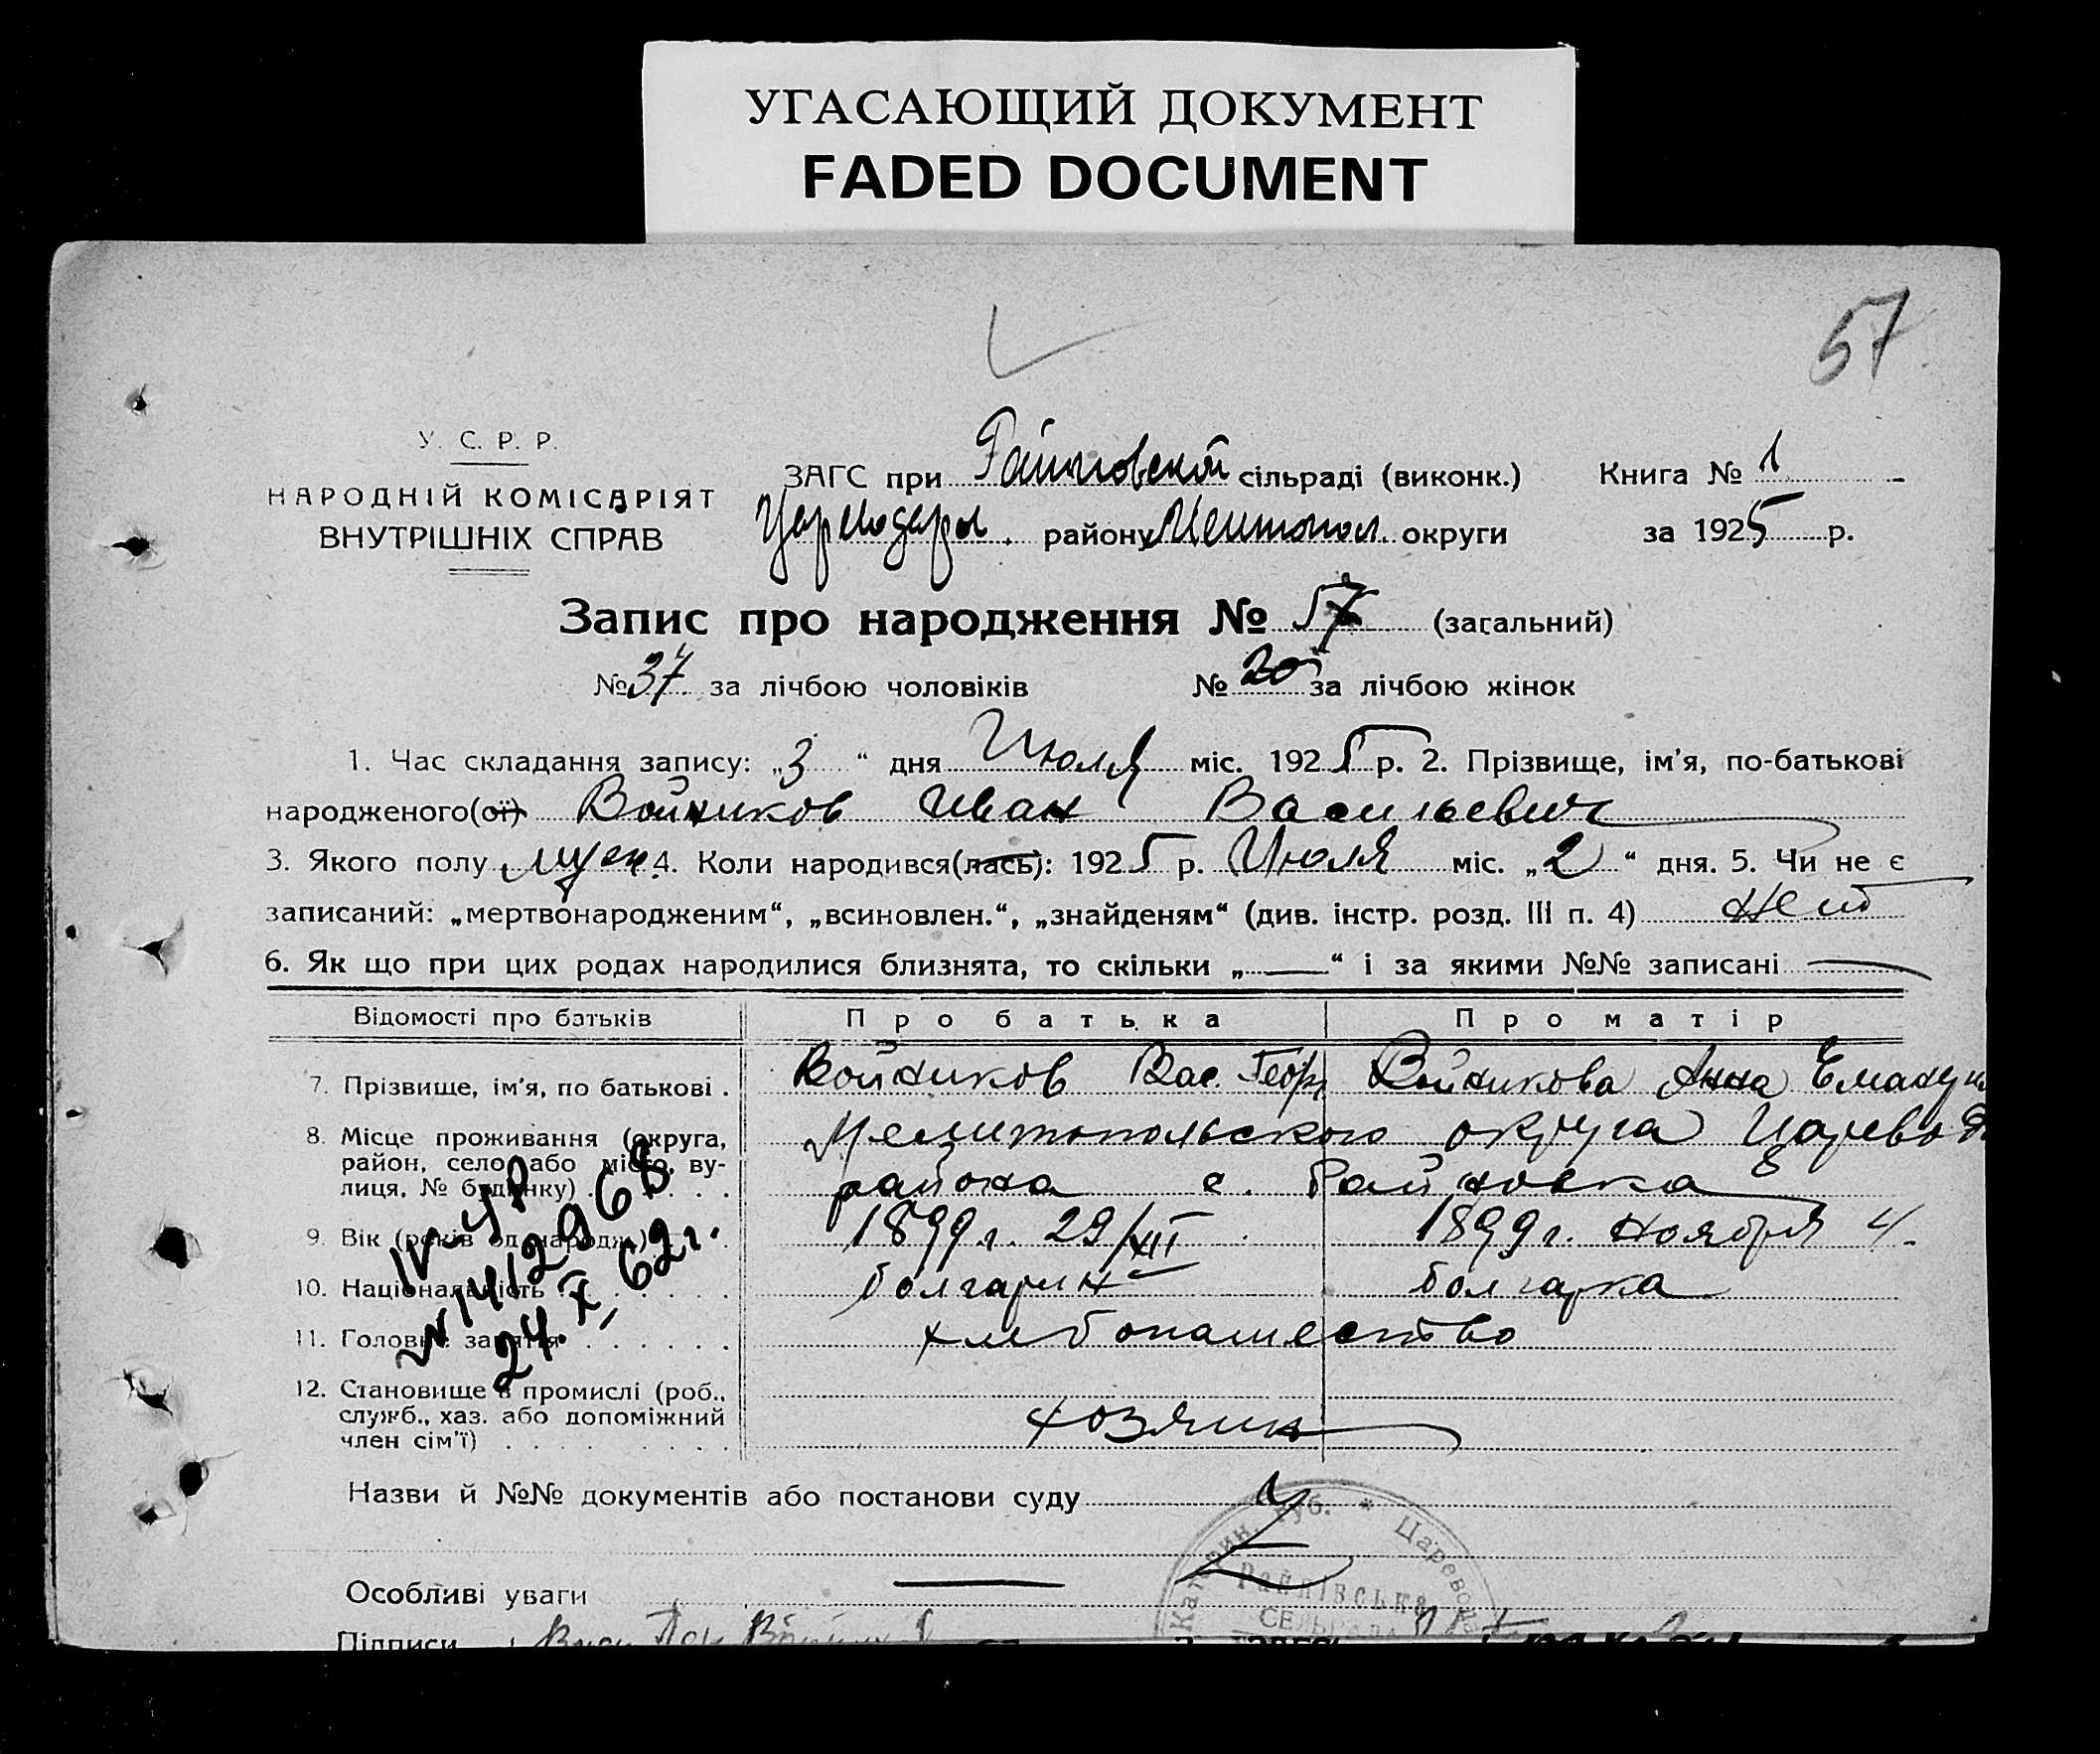 УГАСАЮЩИЙ ДОКУМЕНТ
FADED DOCUMENT
57
У. С. Р. Р.
НАРОДНІЙ КОМІСАРІЯТ
ВНУТРІШНІХ СПРАВ
ЗАГС при Райновской сільраді (виконк.)
Цареводар. району Мелитопол. округи
Книга № 1
за 1925 р.
Запис про народження № 57 (загальний)
№ 37 за лічбою чоловіків № 20 за лічбою жінок
1. Час складання запису: „3“ дня Июля міс. 1925 р. 2. Прізвище, ім'я, по-батькові
народженого(ої) Войников Иван Васильевич
3. Якого полу муж. 4. Коли народився(лась): 1925 р. Июля міс. „2“ дня. 5. Чи не є
записаний: „мертвонародженим“, „всиновлен.“, „знайденям“ (див. інстр. розд. III п. 4) Нет
6. Як що при цих родах народилися близнята, то скільки „—“ і за якими №№ записані —
Відомості про батьків Про батька Про матір
7. Прізвище, ім'я, по батькові . Войников Вас. Георг Войникова Анна Емануи
8. Місце проживання (округа, район, село або місто, вулиця, № будинку) Мелитопольского округа Царевод
района с. Райновка
9. Вік (років од народж.) 1899 г. 29/XII 1899 г. Ноября 4
10. Національність болгарин болгарка
11. Головне заняття хлебопашество
12. Становище в промислі (роб., служб., хаз. або допоміжний член сім'ї) хозяин
IV-ЧР
№ 1412968
24.X 62 г.
Назви й №№ документів або постанови суду
Особливі уваги —
Катерин. губ. * Царевод
Райнівська
СЕЛЬРАДА
Підписи